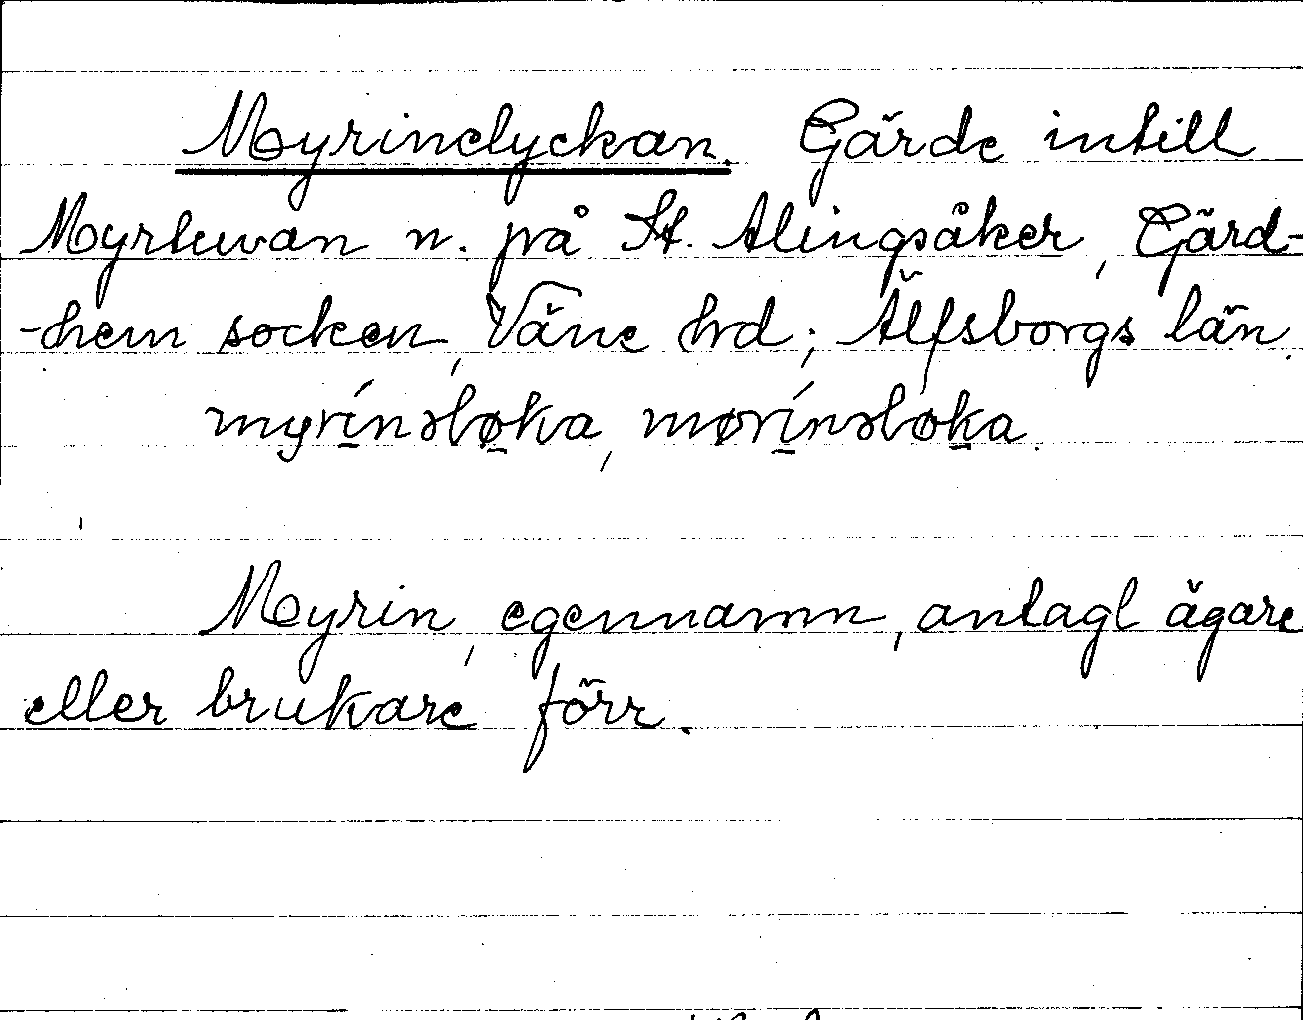 Myrinelyckan. Gärde intill
Myrtuvan n. på St. Alingsåker, Gärd-
-hem socken, Väne hd; Älfsborgs län.
myrínsløka, mørínsløka.
Myrin, egennamn, antagl ägare
eller brukare förr.